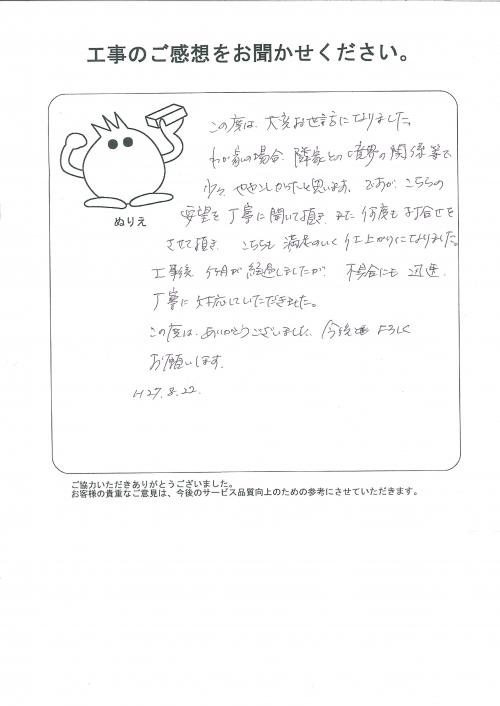 工事のご感想をお聞かせください。
この度は、大変お世話になりました。
わが家の場合、隣家との境界の関係等で
少々、ややこしかったと思います。ですが、こちらの
ぬりえ
要望を丁寧に聞いて頂き、また何度も打合せを
させて頂き、こちらも満足のいく仕上がりになりました。
工事後、ヶ月が経過しましたが、不具合にも迅速
丁寧に対応していただきました。
この度は、ありがとうございました。今後もよろしく
お願いします。
H27.8.22.
ご協力いただきありがとうございました。
お客様の貴重なご意見は、今後のサービス品質向上のための参考にさせていただきます。